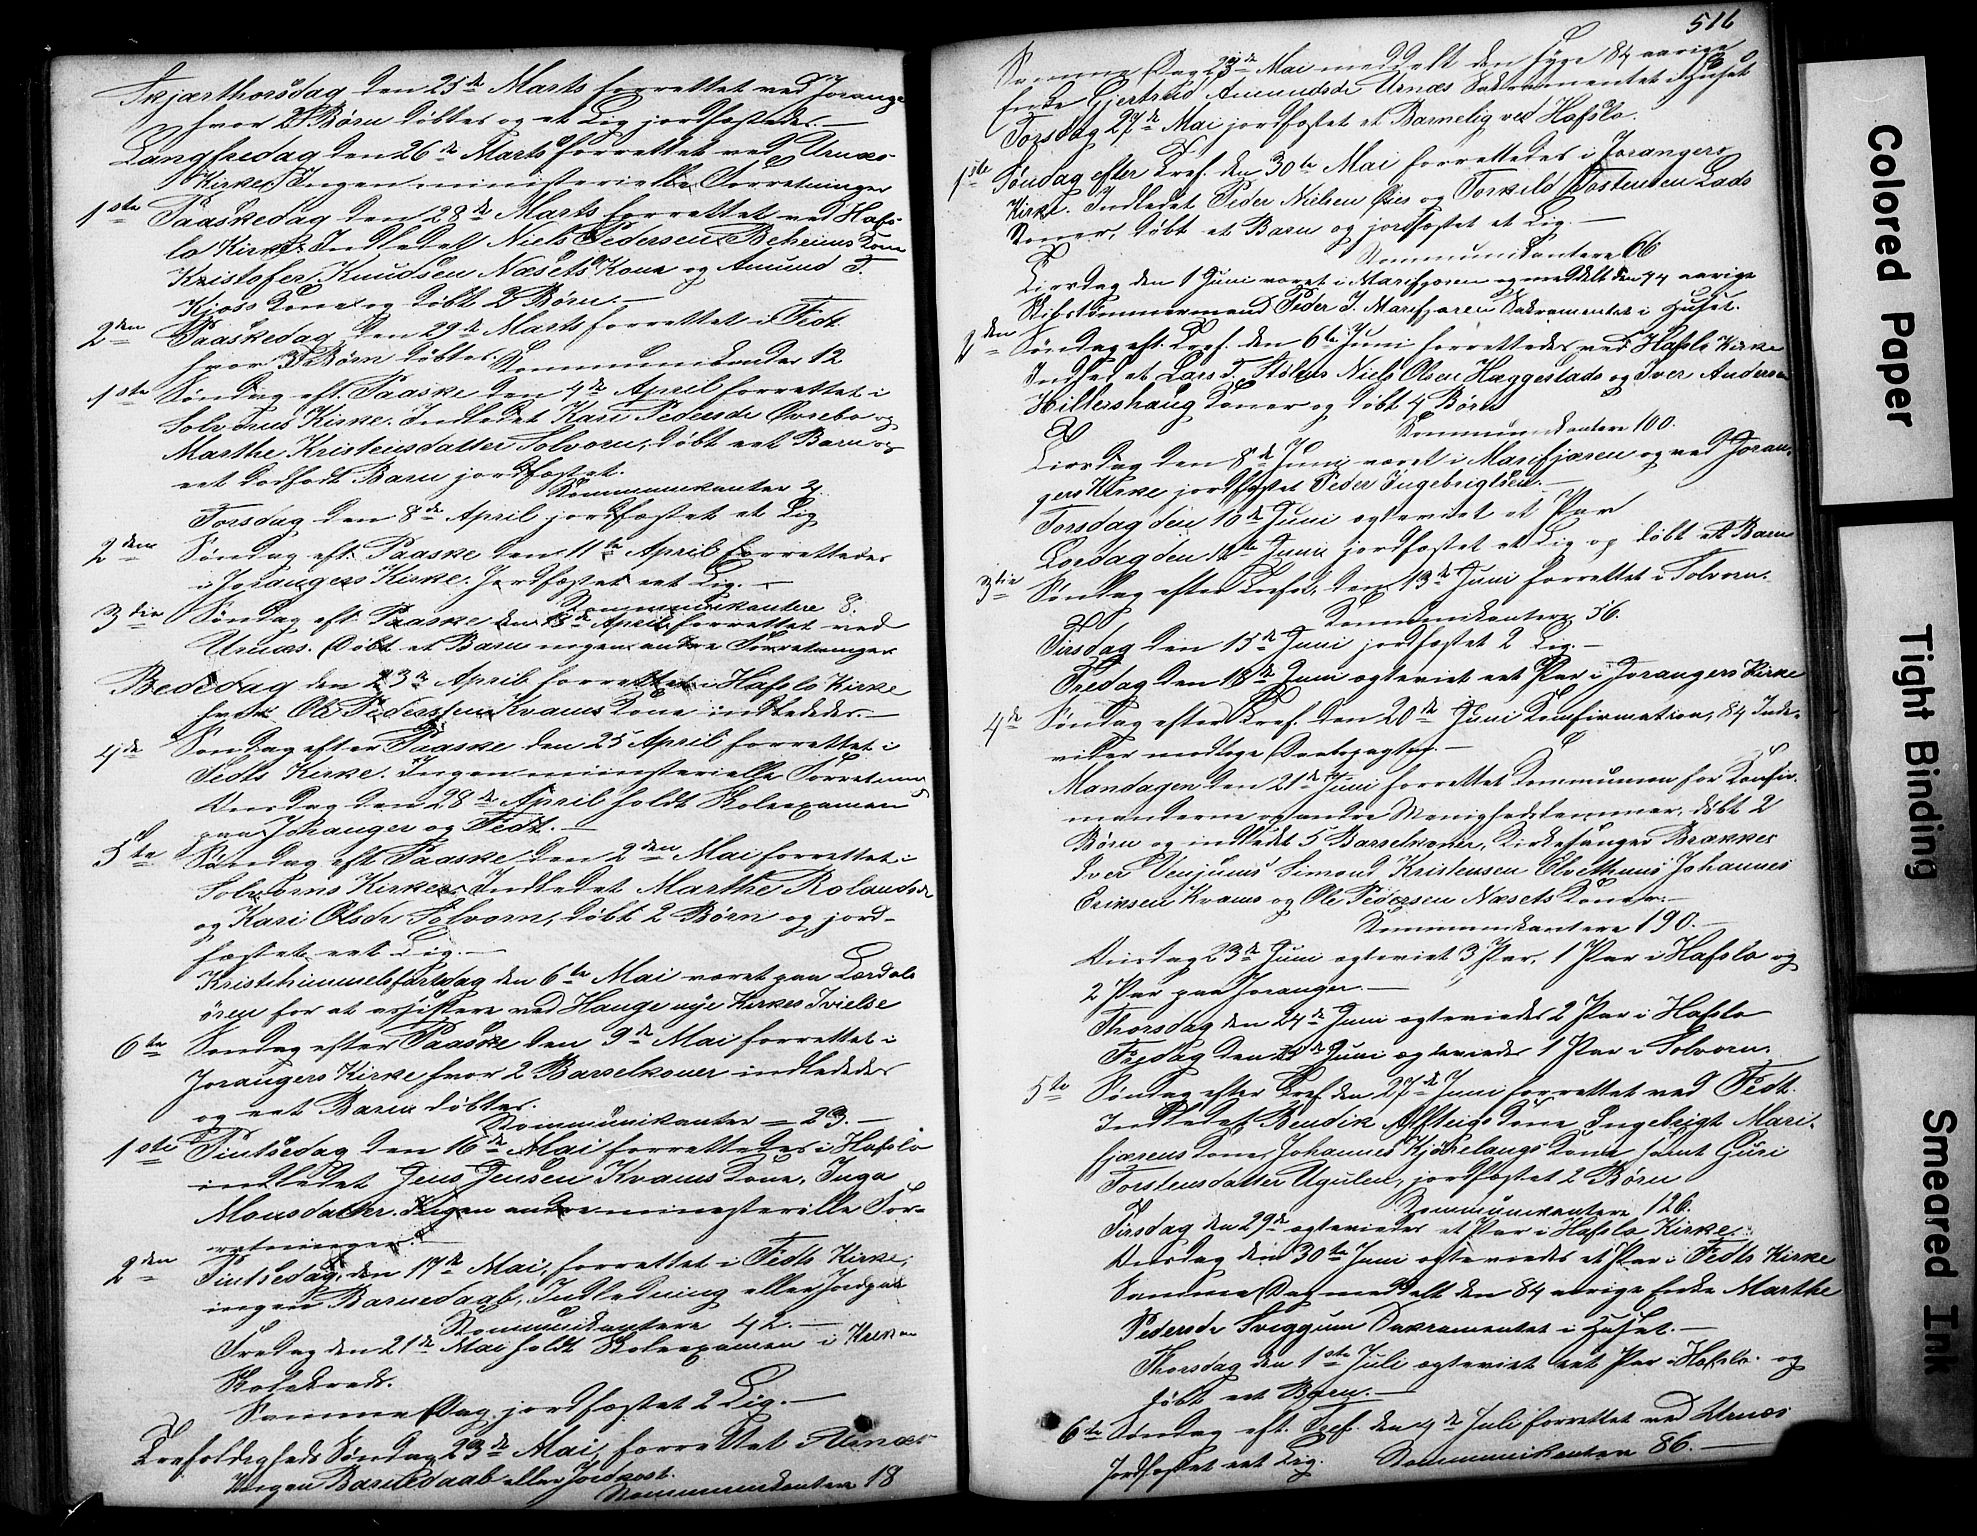 Skjærthorsdag den 25de Marts forrettet ved Joranger
hvor 2 Børn døbtes og et Lig jordfæstedes.—
Langfredag den 26de Marts forrettet ved Urnæs
Kirke. Ingen ministerielle Forretninger
1ste Paaskedag den 28de Marts forrettet ved Hafs-
lo Kirke. Indledet Niels Pedersen Beheims Kone
Kristofer Knudsen Næsets Kone og Amund T.
Kjoss Kone og døbt 2 Børn.—
2den Paaskedag den 29de Marts forrettet i Fedt.
hvor 3 Børn døbtes. Kommunikander 12
1ste Søndag eft. Paaske den 4de April forrettet i
Solvorns Kirke. Indledet Kari Pedersdr Øvrebø og
Marthe Kristensdatter Solvorn, døbt eet Barn og
eet dødfødt Barn jordfæstet.
Kommunikanter
Torsdag den 8de April jordfæstet et Lig
2den Søndag eft. Paaske den 11te April forrettedes
i Jorangers Kirke. Jordfæstet eet Lig.—
Kommunikantere 8.
3die Søndag eft. Paaske den 18de April forrettet ved
Urnæs. Døbt et Barn ingen andre Forretninger
Bededag den 23de April forrettet i Hafslo Kirke
hvor Ole Pederssen Kvams Kone indlededes.—
4de Søndag efter Paaske den 25 April forrettet i
Fedts Kirke. Ingen ministerielle Forretning
Onsdag den 28de April holdt Skoleexamen
paa Joranger og Fedt.—
5te Søndag eft Paaske den 2den Mai forrettet i
Solvorns Kirke. Indledet Marthe Rolandsdr
og Kari Olsdr Solvorn, døbt 2 Børn og jord-
fæstet eet Lig.—
Kristihimmelfartsdag den 6te Mai været paa Lærdals
ören for at assistere ved Hauge nye Kirkes Indvielse
6te Søndag efter Paaske den 9de Mai forrettet i
Jorangers Kirke hvor 2 Barselkoner indlededes
og eet Barn døbtes.
Kommunikanter = 23.—
1ste Pintsedag den 16de Mai forrettedes i Hafslo
indledet Jens Jensen Kvams Kone, Inga
Monsdatter. Ingen andre ministerielle For-
retninger.
2den Pintsedag, den 17de Mai, forrettet i Fedts Kirke,
ingen Barnedaab, Indledning eller Jordpaak
Kommunikantere 42.—
Fredag den 21de Mai holdt Skoleexamen i
Skolekreds.
Samme Dag jordfæstet 2 Lig.—
Trefoldigheds Søndag 23de Mai, forrettet i Urnæs
Ingen Barnedaab eller Jordpaak.
Kommunikantere 18
516
Samme Dag 23de Mai meddelt den syge 84 aarige
Enke Gjertrud Amundsdr Urnæs Sakramentet i Huset
Torsdag 27de Mai jordfæstet et Barnelig ved Hafslo.
1ste Søndag efter Tref. den 30te Mai forrettedes i Jorangers
Kirke. Indledet Peder Nielsen Øies og Torkild Tostensen Lads
Koner, døbt et Barn og jordfæstet et Lig.—
Kommunikantere 66
Tirsdag den 1 Juni været i Marifjøren og meddelt den 74 aarige
Skibstømmermand Peder I. Marifjøren Sakramentet i Huset.
2den Søndag eft. Tref. den 6te Juni forrettedes ved Hafslo Kirke
Indledet Lars T. Stølens Niels Olsen Hæggestads og Iver Andersen
Hillershaug Koner og døbt 4 Børn
Kommunikantere 100.
Tirsdag den 8de Juni været i Marifjæren og ved Joran-
gers Kirke jordfæstet Peder Ingebrigtsen.—
Torsdag den 10de Juni ægteviet et Par
Lørdag den 12te Juni jordfæstet et Lig og døbt et Barn
3die Søndag efter Trefol. den 13de Juni forrettet i Solvorn.
Kommunikantere 56.
Tirsdag den 15de Juni jordfæstet 2 Lig.—
Fredag den 18de Juni ægteviet eet Par i Jorangers Kirke
4de Søndag efter Tref. den 20de Juni Konfirmation, 84 Indi-
vider medtoge Daabspagten.—
Mandagen den 21de Juni forrettet Kommunion for Konfir-
manderne og andre Menighedslemmer, døbt 2
Børn og indledt 5 Barselkoner, Kirkesanger Brækkes
Iver Venjums Simond Kristensen Elvethuns Johannes
Eriksen Kvams og Ole Pedersen Næsets Koner.—
Kommunikantere 190.—
Onsdag 23de Juni ægteviet 3 Par, 1 Par i Hafslo og
2 Par paa Joranger.—
Thorsdag den 24de Juni ægteviedes 2 Par i Hafslo
Fredag den 25de Juni ægteviedes 1 Par i Solvorn.
5te Søndag efter Tref. den 27de Juni forrettet ved Fedt.
Indledet Bendik Alsteigs Kone Ingebrigt Mari-
fjærens Kone, Johannes Kjørelangs Kone samt Guri
Torstensdatter Ugulen, jordfæstet 2 Børn
Kommunikantere 126.
Tirsdag den 29de ægteviedes et Par i Hafslo Kirke.
Onsdag den 30te Juni ægteviedes et Par i Fedts Kirke
Samme Dag meddelt den 84 aarige Enke Marthe
Pedersdr Sviggum Sakramentet i Huset.—
Thorsdag den 1ste Juli ægteviet eet Par i Hafslo. og
døbt eet Barn.—
6te Søndag eft. Tref. den 4de Juli forrettet ved Urnæs
Jordfæstet eet Lig. Kommunikantere 86.—
Colored Paper
Tight Binding
Smeared Ink